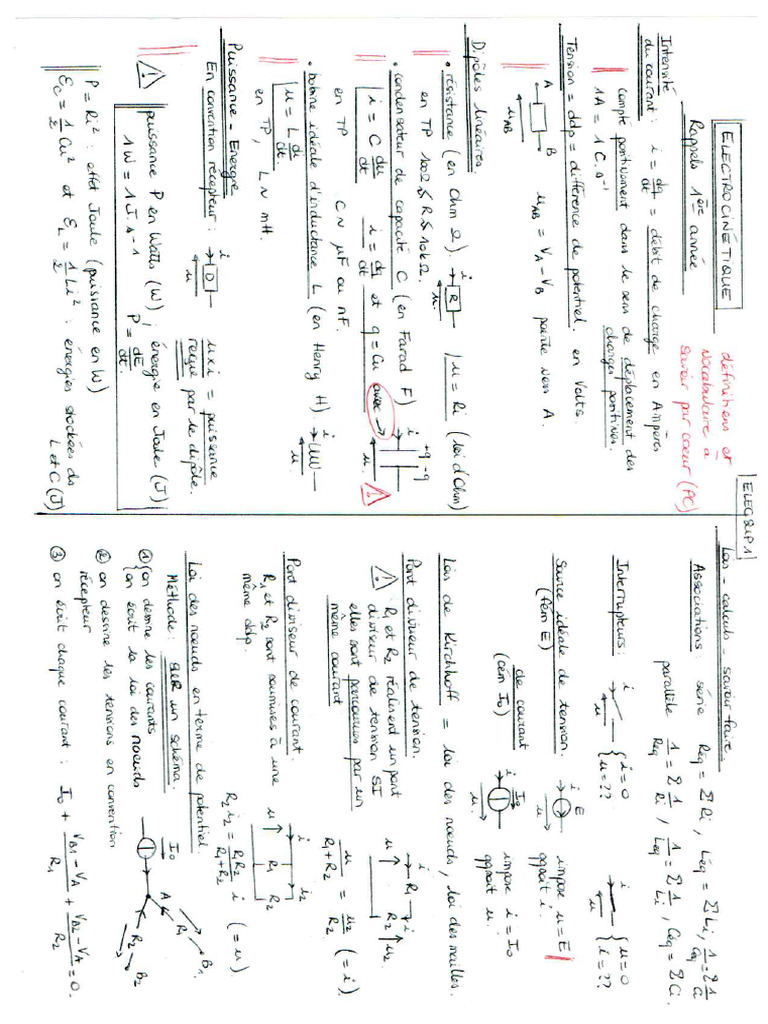 ELEC S2P1
ELECTROCINÉTIQUE
Rappels 1ère année
définitions et
vocabulaire à
savoir par coeur (PC)
Intensité
du courant : i = dq/dt = débit de charge en Ampères
1A = 1 C.s⁻¹
compté positivement dans le sens de déplacement des
charges positives.
Tension = ddp = différence de potentiel, en Volts
A B
u_AB
u_AB = V_A - V_B pointe vers A.
Dipôles linéaires
• résistance (en Ohm Ω) i R u u = Ri (loi d'Ohm)
en TP 100Ω ≤ R ≤ 10kΩ.
• condensateur de capacité C (en Farad F) i +q -q
i = C du/dt i = dq/dt et q = Cu avec → u. ⚠
en TP C ~ µF ou nF.
• bobine idéale d'inductance L (en Henry H) i u
u = L di/dt
en TP, L ~ mH.
Puissance - Energie
En convention récepteur : i D u u×i = puissance
reçue par le dipôle.
⚠ puissance P en Watts (W) ; énergie en Joule (J)
1W = 1J.s⁻¹ P = dE/dt.
P = Ri² : effet Joule (puissance en W)
E_C = 1/2 Cu² et E_L = 1/2 Li² : énergies stockées ds
L et C (J)
Lois - calculs - savoir faire.
Associations : série Réq = Σ Ri, Léq = Σ Li, 1/Céq = Σ 1/Ci
parallèle 1/Réq = Σ 1/Ri, 1/Léq = Σ 1/Li, Céq = Σ Ci.
Interrupteurs : i u { i = 0 u = ?? i u { u = 0 i = ??
Source idéale de tension. i E u impose u = E
(fém E) appart i.
de courant i I₀ u. impose i = I₀
(cém I₀) appart u.
Lois de Kirchhoff = loi des noeuds, loi des mailles.
Pont diviseur de tension. i R₁ i
⚠ R₁ et R₂ réalisent un pont u R₂ u₂
diviseur de tension SI
elles sont parcourues par un u/(R₁+R₂) = u₂/R₂ (= i)
même courant
Pont diviseur de courant. i i₂
R₁ et R₂ sont soumises à une u R₁ R₂
même ddp. R₂ i₂ = R₁R₂/(R₁+R₂) i (= u)
Loi des noeuds en terme de potentiel.
Méthode : SUR un schéma. I₀ A R₁ B₁ R₂ B₂
① { on dessine les courants
on écrit la loi des noeuds
② on dessine les tensions en convention
récepteur
③ on écrit chaque courant : I₀ + (V_B1 - V_A)/R₁ + (V_B2 - V_A)/R₂ = 0.